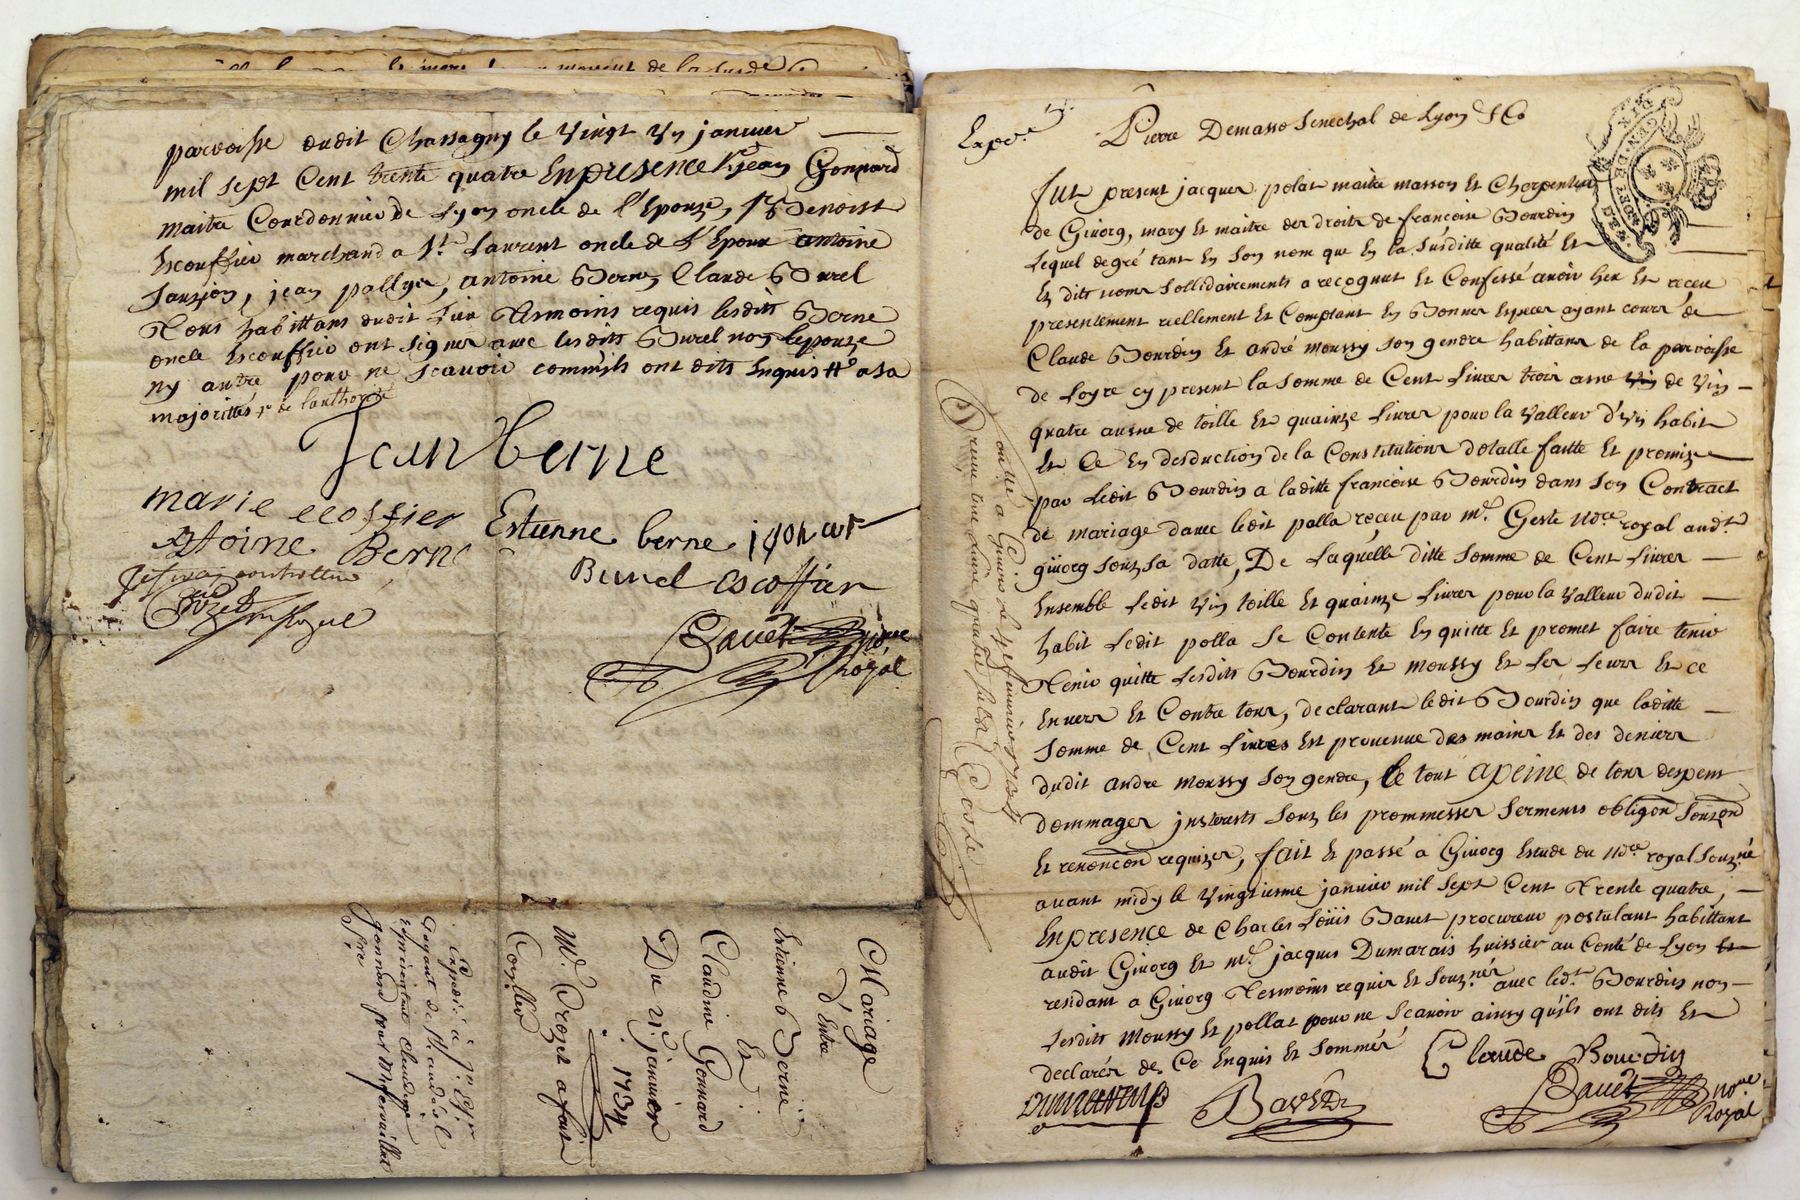 parroisse dudit Chassagny le vingt un janvier
mil sept Cent trente quatre En presence de jean Gonnard
maitre Cordonnier de Lyon oncle de l'Epouze, Benoist
Escouffier marchand a St. Laurent oncle de L'Epoux antoine
jean antoine Berne Claude Burel
Tous habittans dudit Lieu Tesmoins requis lesdits Berne
oncle Escouffier ont signes avec lesdits Burel non lepouze
ny autre pour ne scavoir comm'ils ont dits Enquis a sa
majorittés de lauthorité
Jean berne
marie ecoffier
Estienne berne
antoine Berne
Burel escoffier
Bavet nore
Royal
Mariage
d'Entre
Estienne Berne
Et
Claudine Gonnard
Du 21 janvier
1734
Me. Crozet a fait
Conller
Expedié à
representant Claudine
Gonnard pour
Pierre Demasso Senechal de Lyon
Expee.
fut present jacques polat maitre masson Et Charpentier
de Givorg, mary Et maitre des droits de françoise Bourdin
Lequel de gré tant En son nom que En la susditte qualité Et
Es dits noms sollidairements a recognut Et Confessé avoir heu Et receu
presentement reellement Et Comptant En Bonnes Especes ayant cours de
Claude Bourdin Et andré moussy son gendre habittans de la parroisse
de Loyre cy present la somme de Cent Livres trois asne vin de vin
quatre ausne de toille Et quainze Livres pour la valleur d'un habit
Et Ce En desduction de la Constitution dotalle faitte Et promize
par Ledit Bourdin a laditte françoise Bourdin dans son Contract
de mariage d'avec ledit polla receu par me. Geste nore royal audt.
givorg souz sa datte, De Laquelle ditte somme de Cent Livres
Ensemble Ledit vin toille Et quainze Livres pour la valleur dudit
habit Ledit polla Se Contente En quitte Et promet faire tenir
Tenir quitte Lesdits Bourdin Et moussy Et Les Leurs Et ce
Envers Et Contre tous, declarant ledit Bourdin que laditte
somme de Cent Livres Est provenue des mains Et des deniers
dudit andre moussy son gendre, Le tout apeine de tous despens
dommages justerests souz les prommesses serments obligon
Et renoncon requizes, fait Et passé a Givorg Estude du nore royal souzné
avant midy le vingtiesme janvier mil sept Cent Trente quatre,
En presence de Charles Loüis Bavet procureur postulant habittant
audit Givorg Et me. jacques Dumarais huissier au Conté de Lyon Et
residant a Givorg Tesmoins requis Et souznés avec ledt. Bourdin non
Lesdits Moussy Et pollat pour ne Scavoir ainsy qu'ils ont dits Et
declarés de Ce Enquis Et Sommés
Claude Bourdin
Dumarais
Bavet
Bavet nore
Royal
Conllé a Givors le
Receu une Livre quatre sols